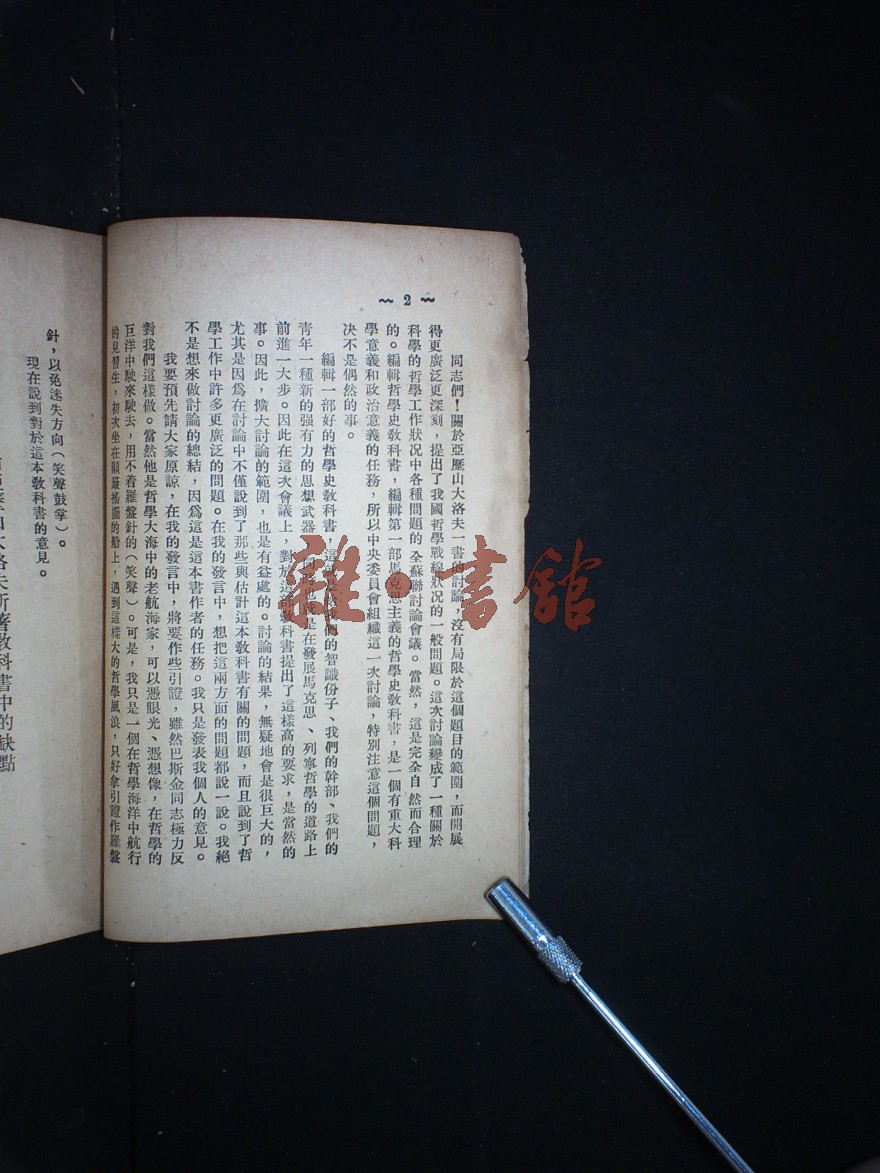 ~ 2 ~
同志們！關於亞歷山大洛夫一書的討論，沒有局限於這個題目的範圍，而開展
得更廣泛更深刻，提出了我國哲學戰線狀況的一般問題。這次討論變成了一種關於
科學的哲學工作狀況中各種問題的全蘇聯討論會議。當然，這是完全自然而合理
的。編輯哲學史教科書，編輯第一部馬克思主義的哲學史教科書，是一個有重大科
學意義和政治意義的任務，所以中央委員會組織這一次討論，特別注意這個問題，
决不是偶然的事。
編輯一部好的哲學史教科書，這 們的智識份子、我們的幹部、我們的
青年一種新的强有力的思想武器， 是在發展馬克思、列寧哲學的道路上
前進一大步。因此在這次會議上，對於這部教科書提出了這樣高的要求，是當然的
事。因此，擴大討論的範圍，也是有益處的。討論的結果，無疑地會是很巨大的，
尤其是因爲在討論中不僅說到了那些與估計這本教科書有關的問題，而且說到了哲
學工作中許多更廣泛的問題。在我的發言中，想把這兩方面的問題都說一說。我絕
不是想來做討論的總結，因爲這是這本書作者的任務。我只是發表我個人的意見。
我要預先請大家原諒，在我的發言中，將要作些引證，雖然巴斯金同志極力反
對我們這樣做。當然他是哲學大海中的老航海家，可以憑眼光、憑想像，在哲學的
巨洋中駛來駛去，用不着羅盤針的（笑聲）。可是，我只是一個在哲學海洋中航行
的見習生，初次坐在顛簸搖擺的船上，遇到這樣大的哲學風浪，只好拿引證作羅盤
針，以免迷失方向（笑聲鼓掌）。
現在說到對於這本教科書的意見。
山大洛夫所著教科書中的缺點
雜·書館